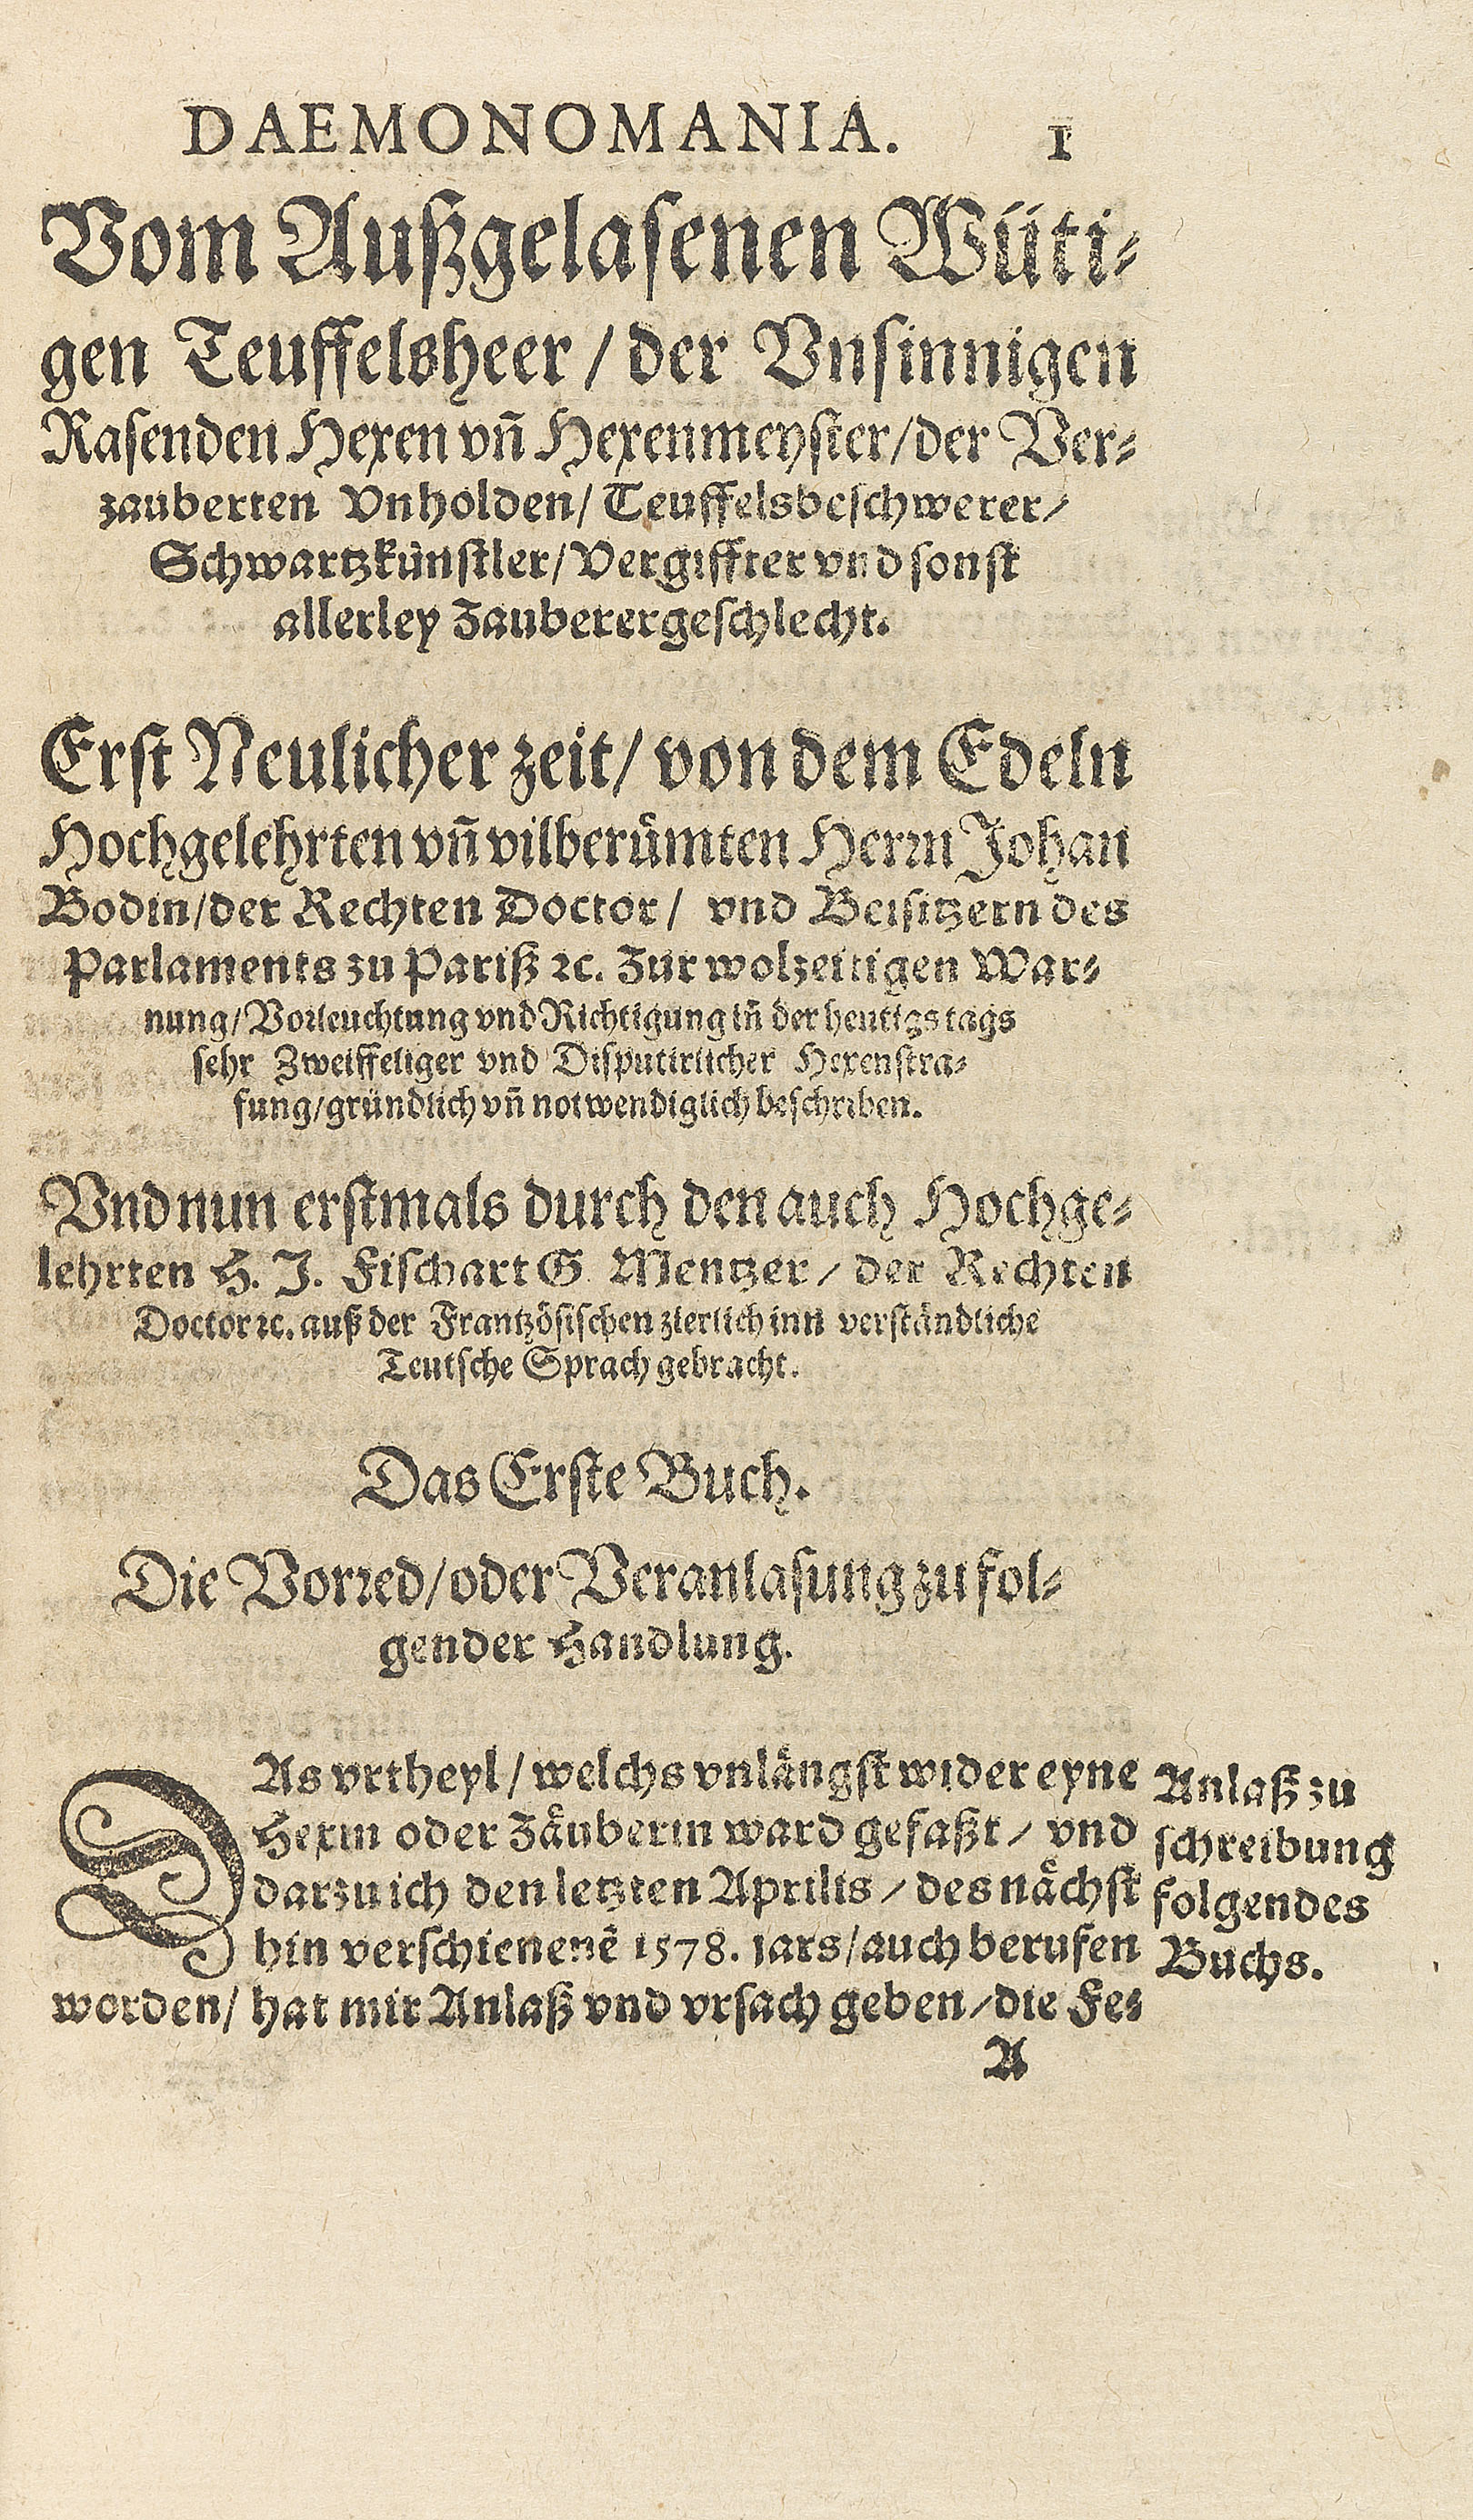 DAEMONOMANIA. 1
Vom Außgelasenen Wüti⸗
gen Teuffelsheer / der Vnsinnigen
Rasenden Hexen vñ Hexenmeyster / der Ver⸗
zauberten Vnholden / Teuffelsbeschwerer /
Schwartzkünstler / Vergiffter vnd sonst
allerley Zauberergeschlecht.
Erst Neulicher zeit / von dem Edeln
Hochgelehrten vñ vilberuͤmten Herrn Johan
Bodin / der Rechten Doctor / vnd Beisitzern des
Parlaments zu Pariß ꝛc. Zur wolzeitigen War⸗
nung / Vorleuchtung vnd Richtigung iñ der heutigs tags
sehr Zweiffeliger vnd Disputirlicher Hexenstra⸗
fung / gründlich vñ notwendiglich beschriben.
Vnd nun erstmals durch den auch Hochge⸗
lehrten H. J. Fischart G. Mentzer / der Rechten
Doctor ꝛc. auß der Frantzösischen zierlich inn verstaͤndliche
Teutsche Sprach gebracht.
Das Erste Buch.
Die Vorred / oder Veranlasung zu fol⸗
gender Handlung.
DAs vrtheyl / welchs vnlaͤngst wider eyne
Hexin oder Zaͤuberin ward gefaßt / vnd
darzu ich den letzten Aprilis / des naͤchst
hin verschienenẽ 1578. jars / auch berufen
worden / hat mir Anlaß vnd vrsach geben / die Fe⸗
Anlaß zu
schreibung
folgendes
Buchs.
A